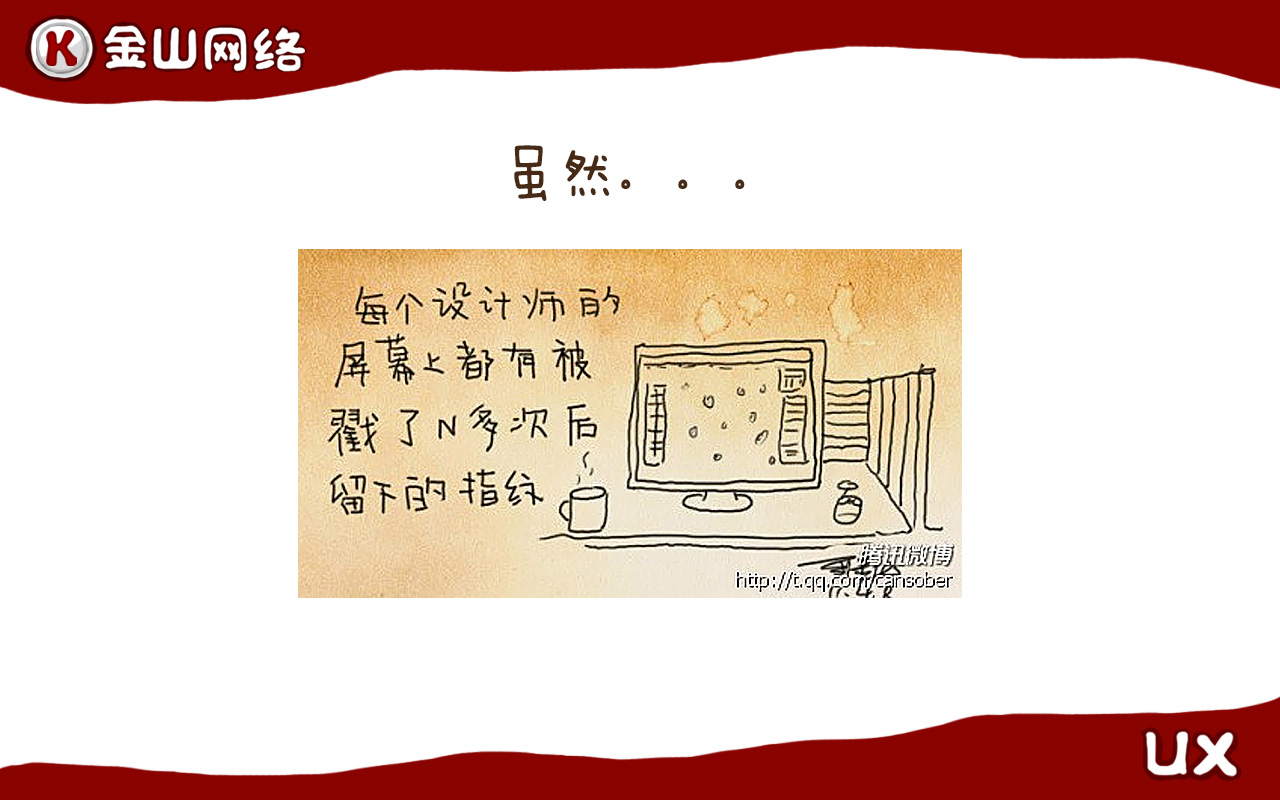 金山网络
虽然。。。
每个设计师的
屏幕上都有被
戳了N多次后
留下的指纹
腾讯微博
http://t.qq.com/cansober
UX